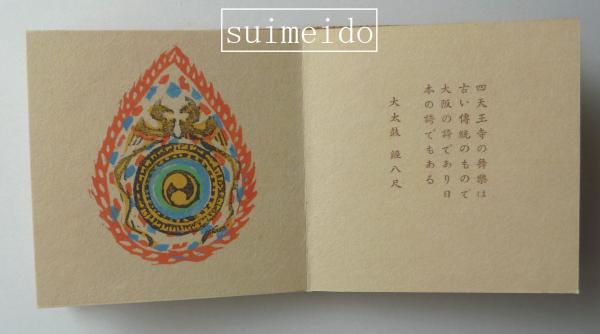 suimeido
四天王寺の舞樂は
古い傳統のもので
大阪の誇であり日
本の誇でもある
大太鼓 經八尺